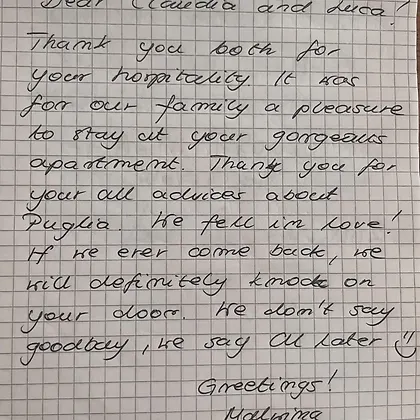 Dear Claudia and Luca!
Thank you both for
your hospitality. It was
for our family a pleasure
to stay at your gorgeous
apartment. Thank you for
your all advices about
Puglia. We fell in love!
If we ever come back, we
will definitely knock on
your door. We don't say
goodbay, we say CU later ☺
Greetings!
Malwina